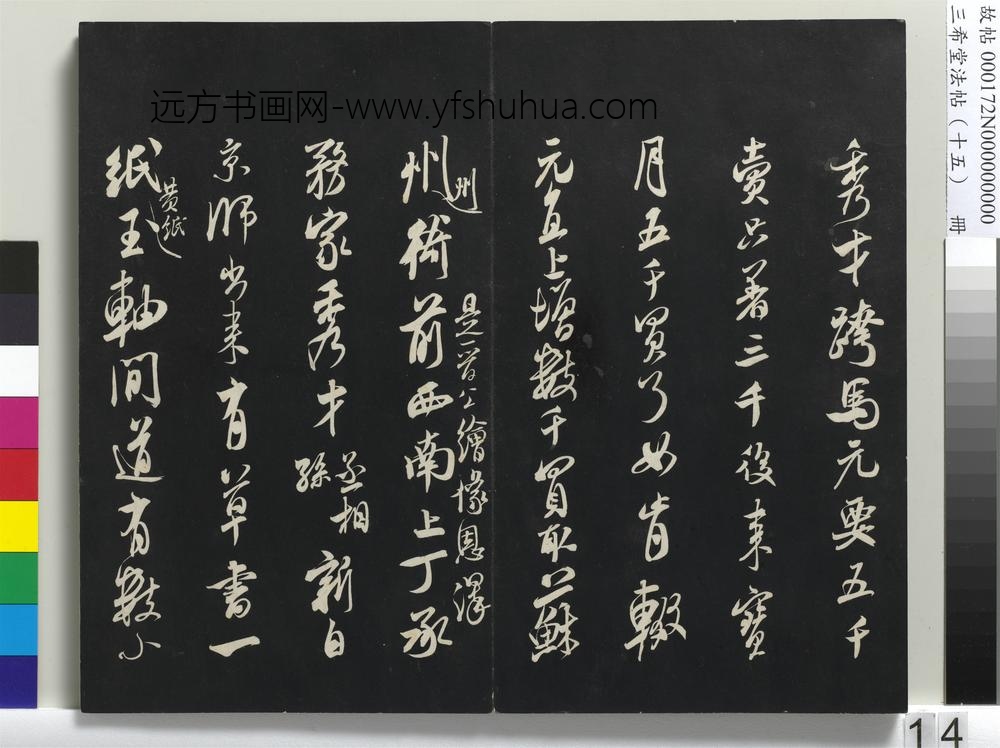 秀才踌马元要五千
卖只著三千後来寶
月五千買了如肯輟
元直上增数千買取蘇
州州衙前西南上丁承
是一晋公繪像恩澤
務家秀才丞相孫新自
京師出来有草書一
紙黄紙玉軸間道有数小
远方书画网-www.yfshuhua.com
故帖 000172N000000000
三希堂法帖（十五） 册
14